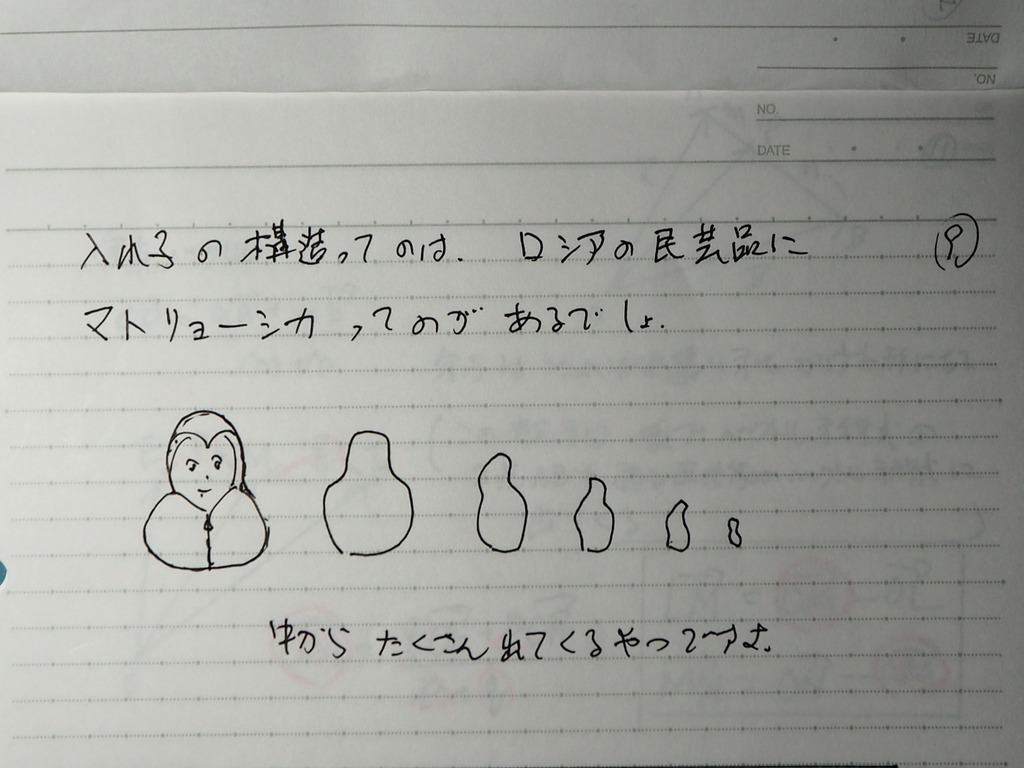 DATE
NO.
NO.
DATE
入れ子の構造ってのは. ロシアの民芸品に
マトリョーシカってのがあるでしょ.
中からたくさん出てくるやつですよ.